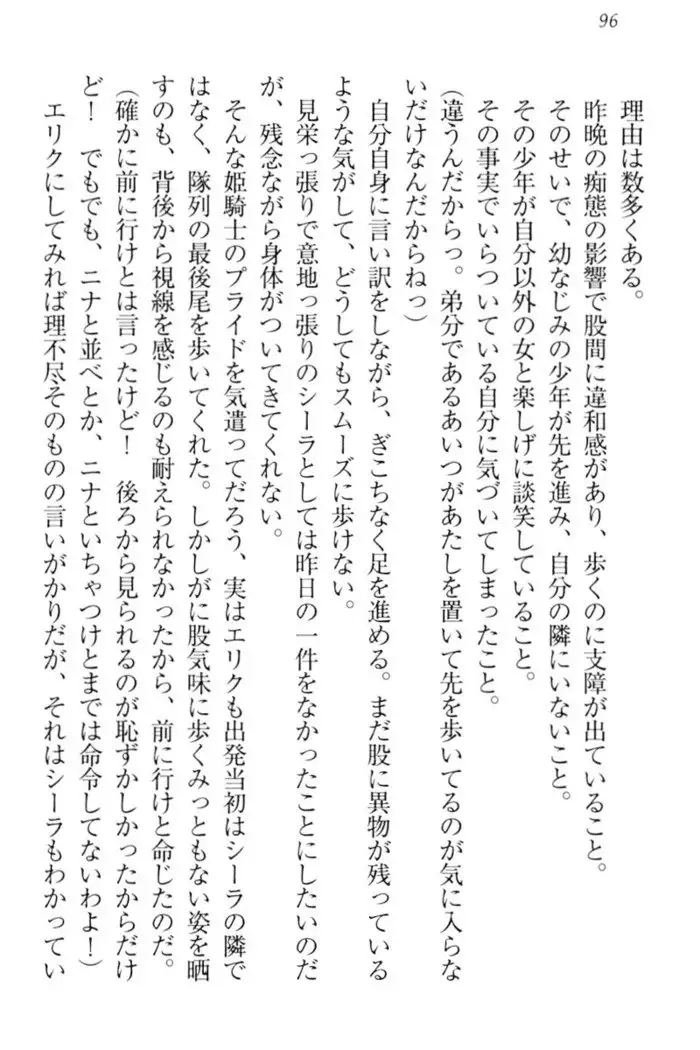 96
理由は数多くある。
昨晩の痴態の影響で股間に違和感があり、歩くのに支障が出ていること。
そのせいで、幼なじみの少年が先を進み、自分の隣にいないこと。
その少年が自分以外の女と楽しげに談笑していること。
その事実でいらついている自分に気づいてしまったこと。
(違うんだからっ。弟分であるあいつがあたしを置いて先を歩いてるのが気に入らな
いだけなんだからねっ)
自分自身に言い訳をしながら、ぎこちなく足を進める。まだ股に異物が残っている
ような気がして、どうしてもスムーズに歩けない。
見栄っ張りで意地っ張りのシーラとしては昨日の一件をなかったことにしたいのだ
が、残念ながら身体がついてきてくれない。
そんな姫騎士のプライドを気遣ってだろう、実はエリクも出発当初はシーラの隣で
はなく、隊列の最後尾を歩いてくれた。しかしがに股気味に歩くみっともない姿を晒
すのも、背後から視線を感じるのも耐えられなかったから、前に行けと命じたのだ。
(確かに前に行けとは言ったけど！　後ろから見られるのが恥ずかしかったからだけ
ど！　でもでも、ニナと並べとか、ニナといちゃつけとまでは命令してないわよ！)
エリクにしてみれば理不尽そのものの言いがかりだが、それはシーラもわかってい